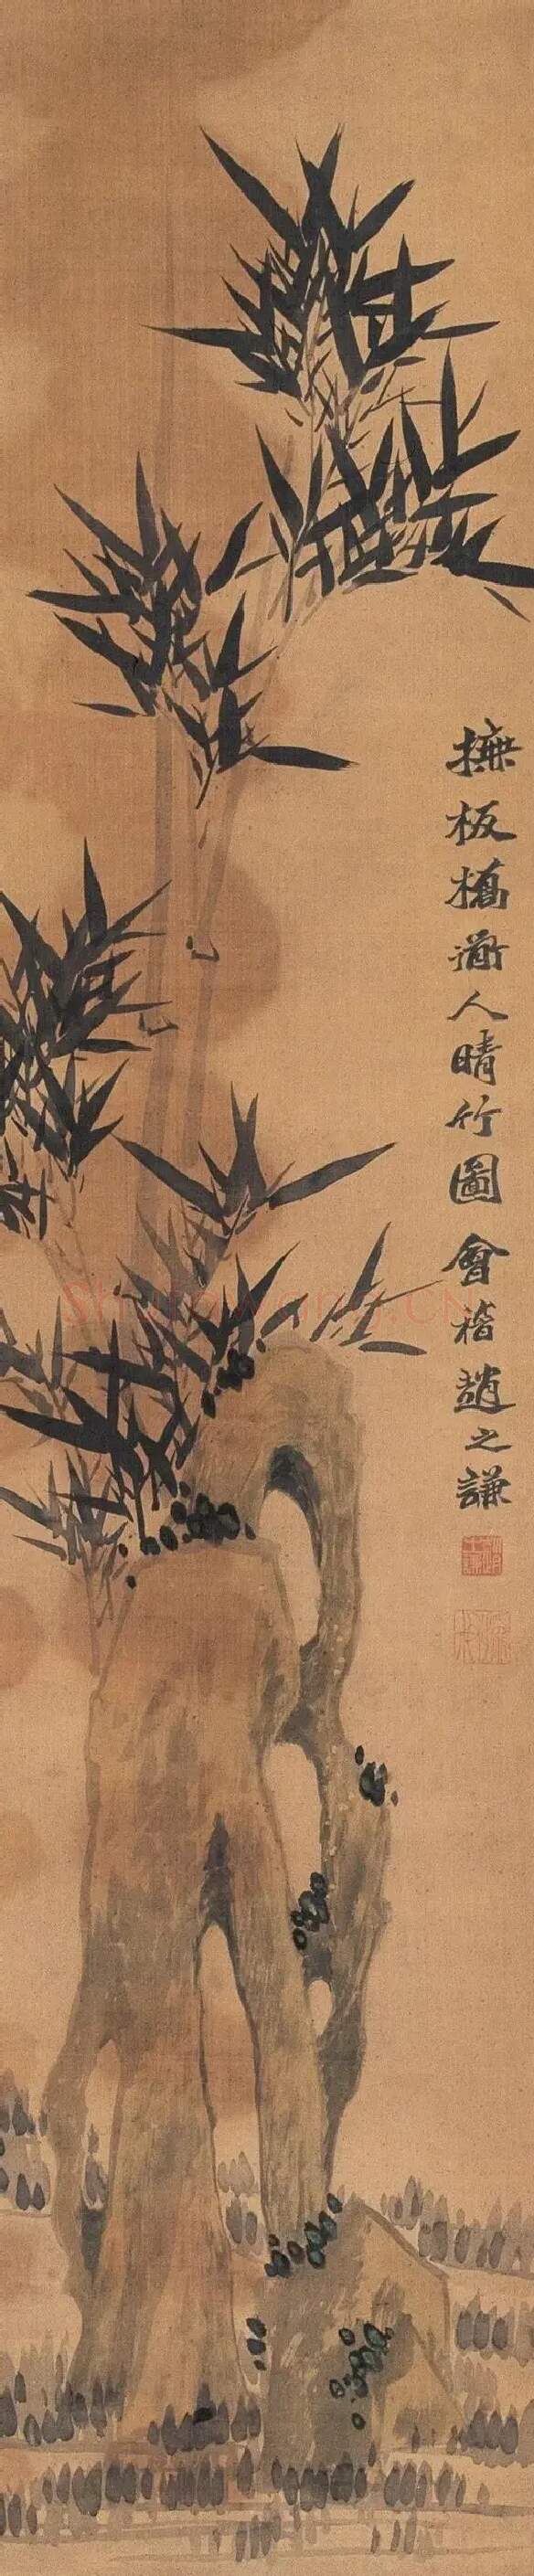 撫板橋衜人晴竹圖會稽趙之謙